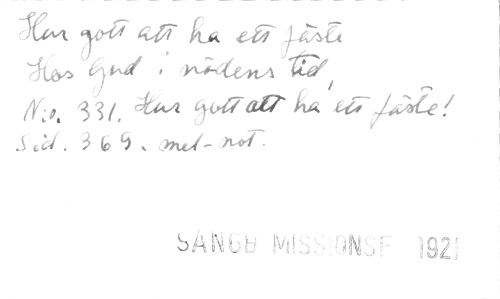 Hur gott att ha ett fäste
Hos Gud i nödens tid,
N:o. 331. Hur gott att ha ett fäste!
Sid. 369. mel-not.
SÅNGB MISSIONSF 1921